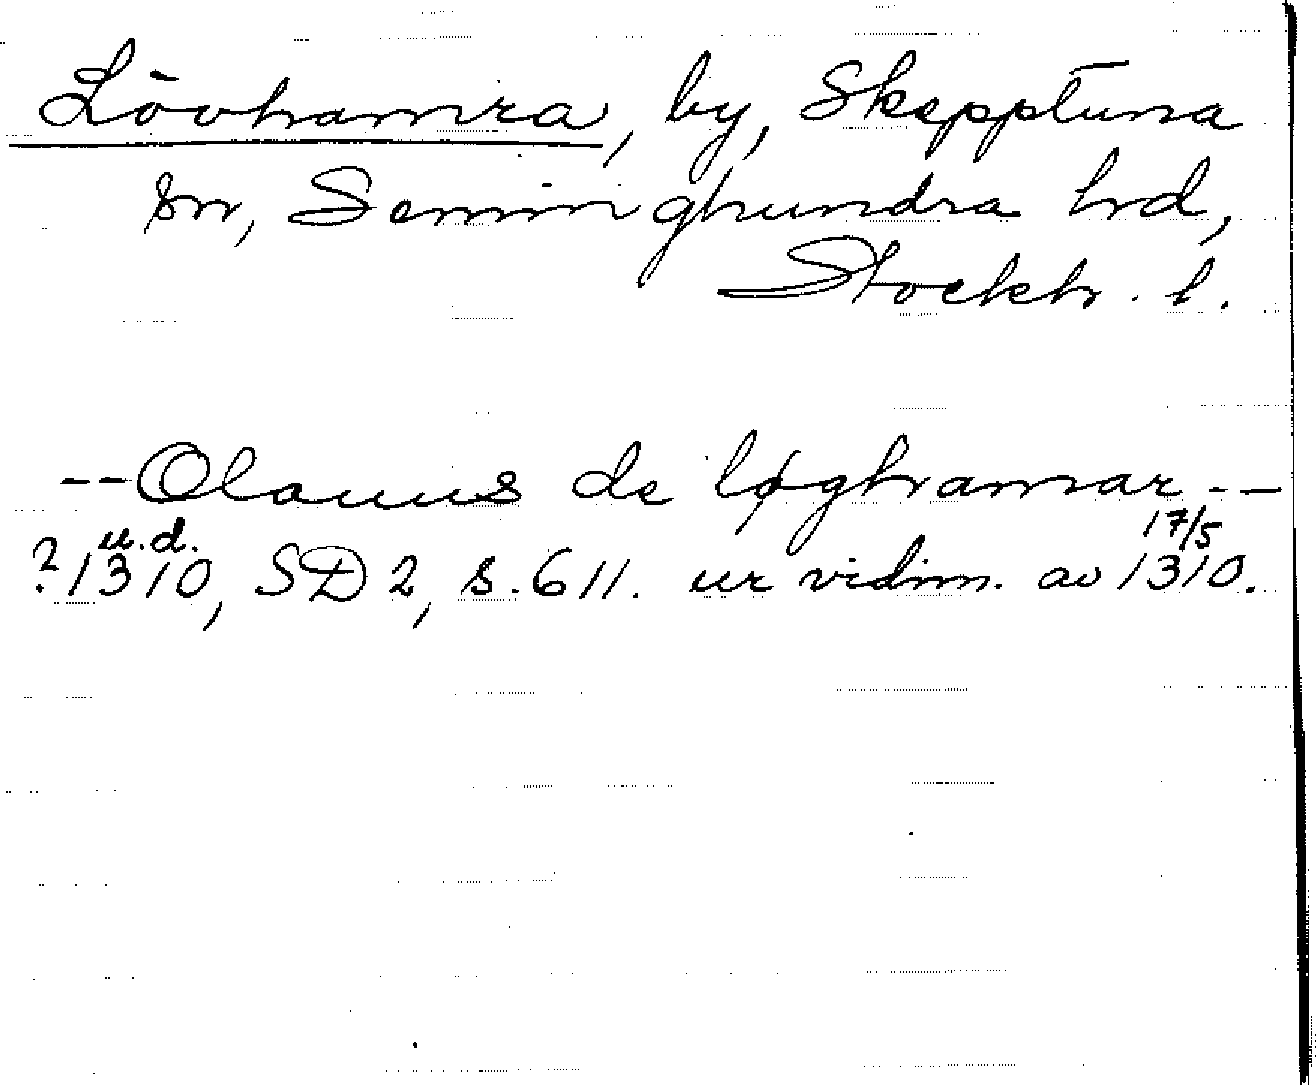 Lövhamra, by, Skepptuna
sn, Seminghundra hrd,
Stockh. l.
--Olauus de løghamar--
u.d. 17/5
?1310, SD 2, s. 611. ur vidim. av 1310.